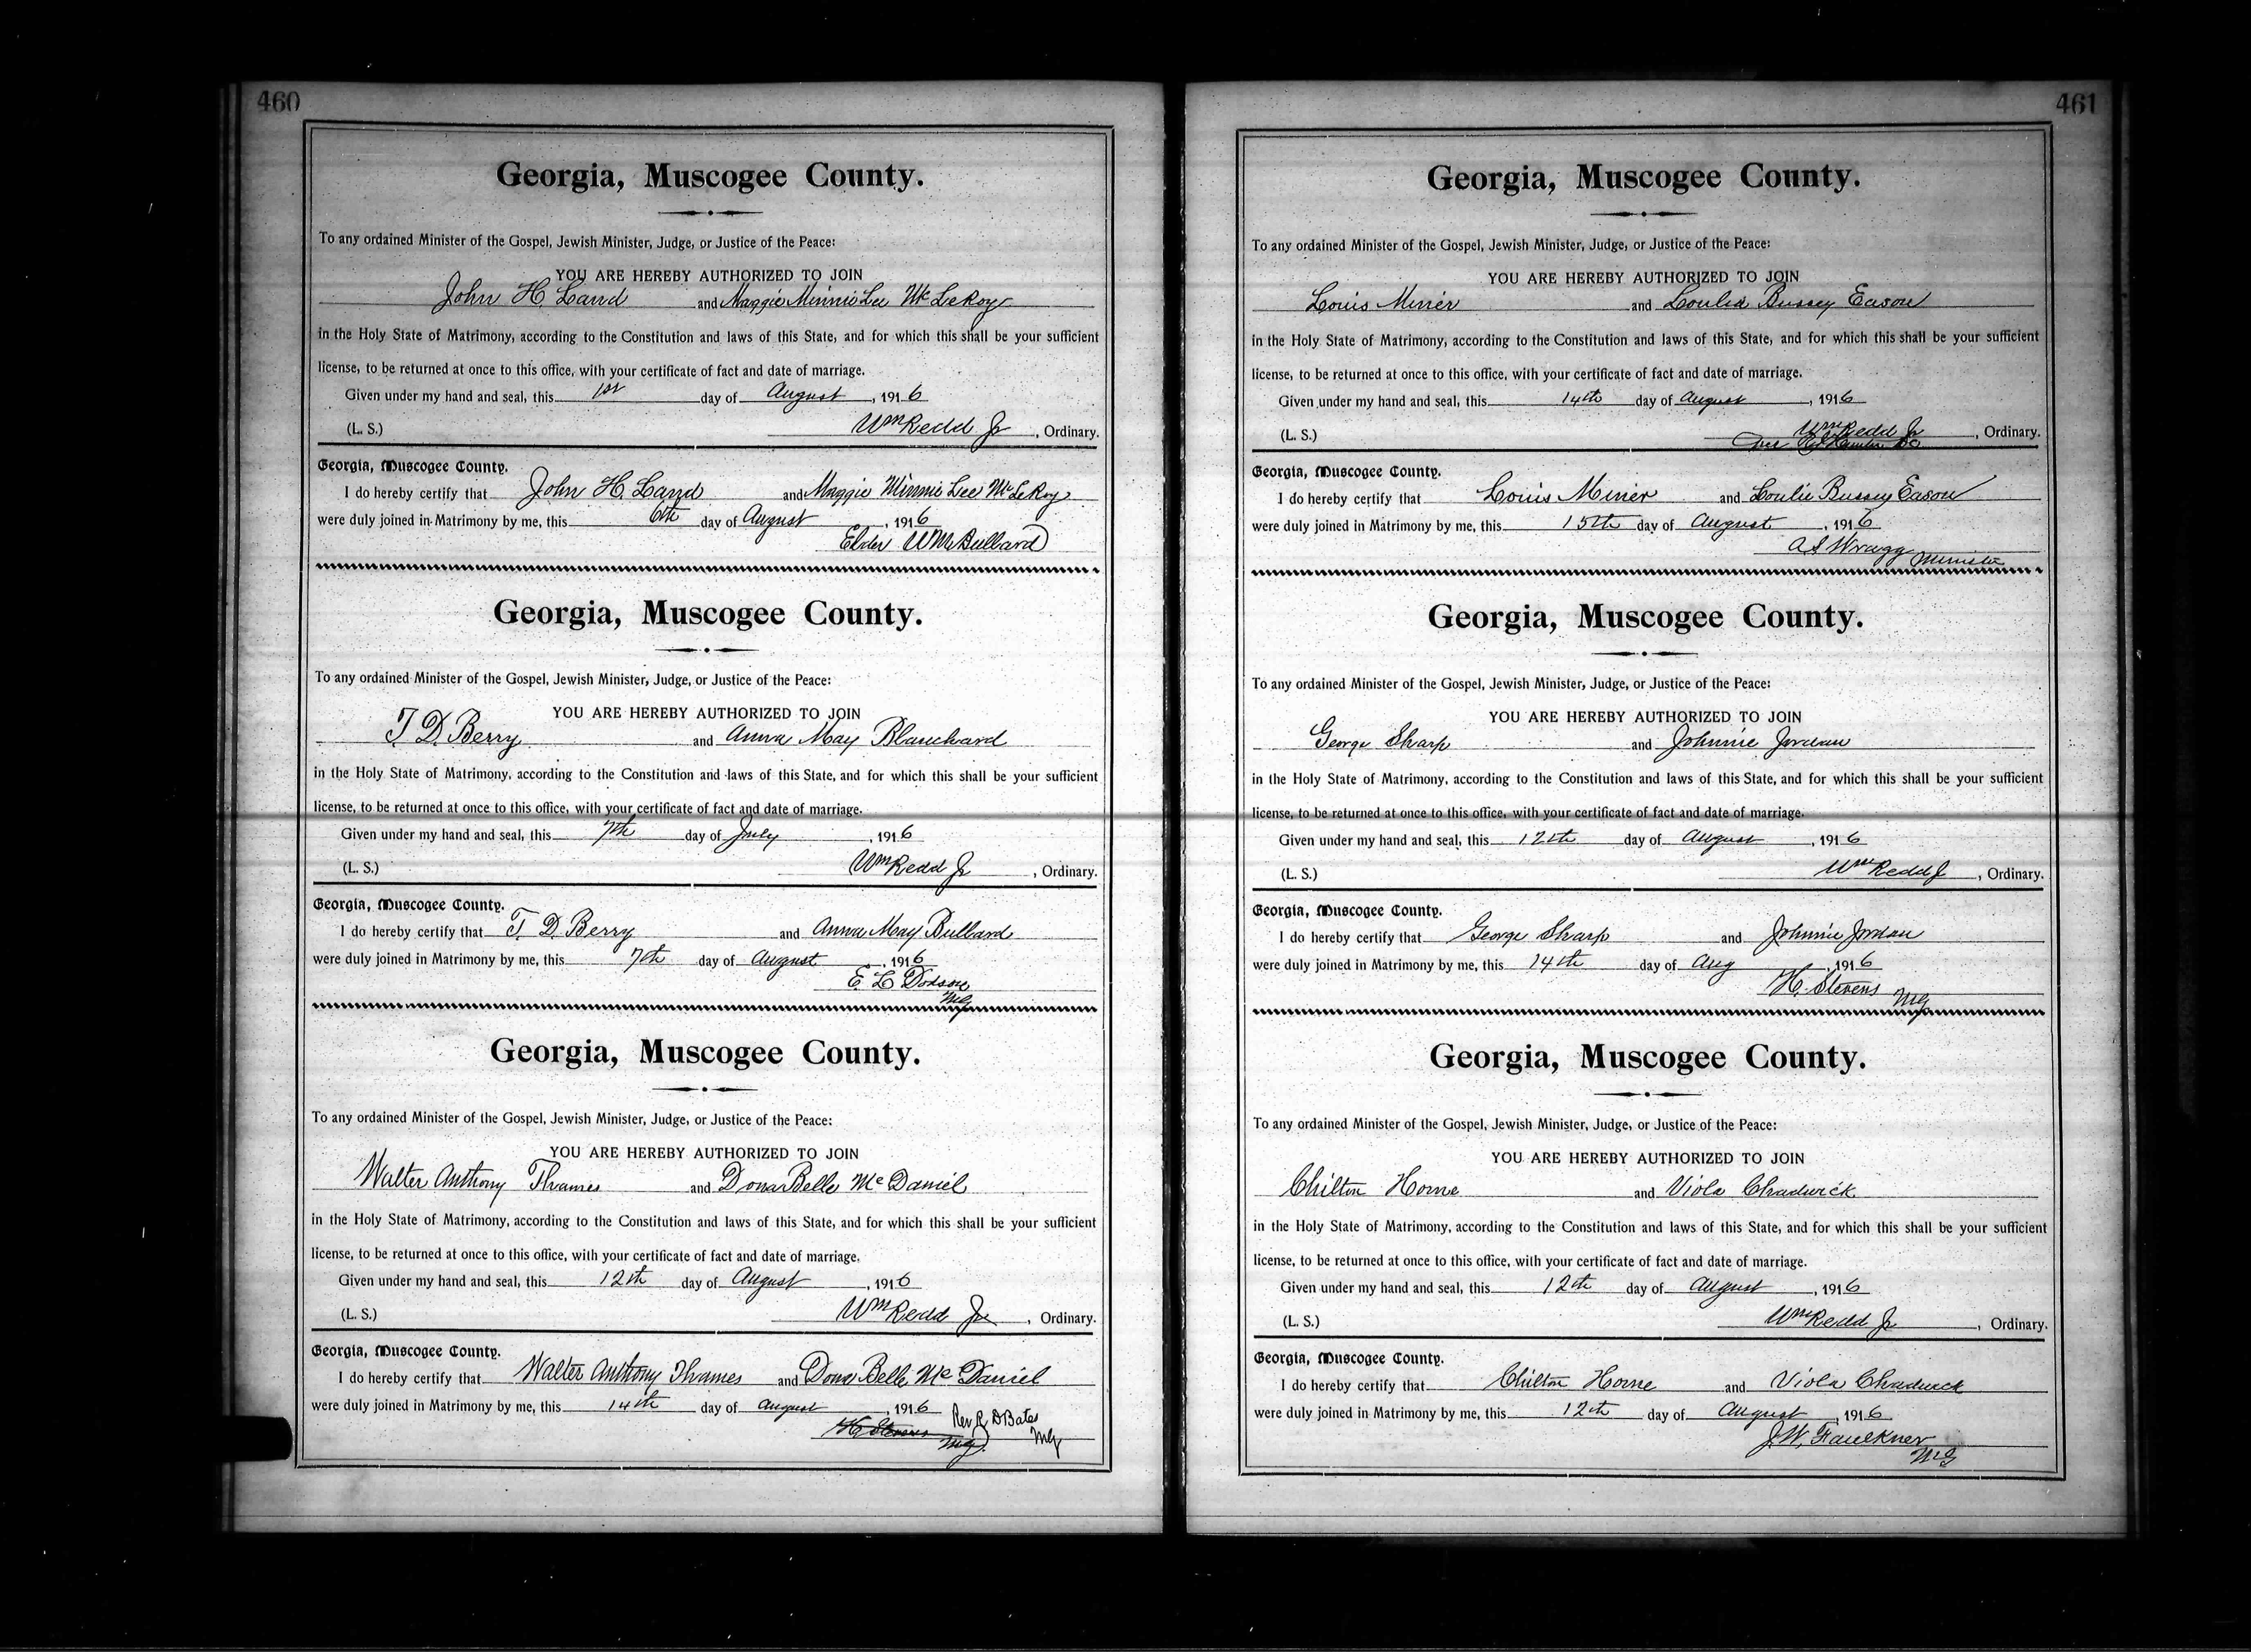 460
Georgia, Muscogee County.
To any ordained Minister of the Gospel, Jewish Minister, Judge, or Justice of the Peace:
YOU ARE HEREBY AUTHORIZED TO JOIN
John H. Land and Maggie Minnie Lee McLeRoy
in the Holy State of Matrimony, according to the Constitution and laws of this State, and for which this shall be your sufficient
license, to be returned at once to this office, with your certificate of fact and date of marriage.
Given under my hand and seal, this 1st day of August, 1916
(L. S.) Wm Redd Jr, Ordinary.
Georgia, Muscogee County.
I do hereby certify that John H. Land and Maggie Minnie Lee McLeRoy
were duly joined in Matrimony by me, this 6th day of August, 1916
Elder WM Bullard
Georgia, Muscogee County.
To any ordained Minister of the Gospel, Jewish Minister, Judge, or Justice of the Peace:
YOU ARE HEREBY AUTHORIZED TO JOIN
T. D. Berry and Anna May Blanchard
in the Holy State of Matrimony, according to the Constitution and laws of this State, and for which this shall be your sufficient
license, to be returned at once to this office, with your certificate of fact and date of marriage.
Given under my hand and seal, this 7th day of July, 1916
(L. S.) Wm Redd Jr, Ordinary.
Georgia, Muscogee County.
I do hereby certify that T. D. Berry and Anna May Bullard
were duly joined in Matrimony by me, this 7th day of August, 1916
E. L. Dodson
MG
Georgia, Muscogee County.
To any ordained Minister of the Gospel, Jewish Minister, Judge, or Justice of the Peace:
YOU ARE HEREBY AUTHORIZED TO JOIN
Walter Anthony Thames and Dona Belle McDaniel
in the Holy State of Matrimony, according to the Constitution and laws of this State, and for which this shall be your sufficient
license, to be returned at once to this office, with your certificate of fact and date of marriage.
Given under my hand and seal, this 12th day of August, 1916
(L. S.) Wm Redd Jr, Ordinary.
Georgia, Muscogee County.
I do hereby certify that Walter Anthony Thames and Dona Belle McDaniel
were duly joined in Matrimony by me, this 14th day of August, 1916
H. Stevens MG Rev. R. D Bates MG
461
Georgia, Muscogee County.
To any ordained Minister of the Gospel, Jewish Minister, Judge, or Justice of the Peace:
YOU ARE HEREBY AUTHORIZED TO JOIN
Louis Minier and Loulie Bussey Eason
in the Holy State of Matrimony, according to the Constitution and laws of this State, and for which this shall be your sufficient
license, to be returned at once to this office, with your certificate of fact and date of marriage.
Given under my hand and seal, this 14th day of August, 1916
(L. S.) Wm Redd Jr, Ordinary.
Georgia, Muscogee County.
I do hereby certify that Louis Minier and Loulie Bussey Eason
were duly joined in Matrimony by me, this 15th day of August, 1916
A S Wragg Minister
Georgia, Muscogee County.
To any ordained Minister of the Gospel, Jewish Minister, Judge, or Justice of the Peace:
YOU ARE HEREBY AUTHORIZED TO JOIN
George Sharp and Johnnie Jordan
in the Holy State of Matrimony, according to the Constitution and laws of this State, and for which this shall be your sufficient
license, to be returned at once to this office, with your certificate of fact and date of marriage.
Given under my hand and seal, this 12th day of August, 1916
(L. S.) Wm Redd Jr, Ordinary.
Georgia, Muscogee County.
I do hereby certify that George Sharp and Johnnie Jordan
were duly joined in Matrimony by me, this 14th day of Aug, 1916
H. Stevens MG
Georgia, Muscogee County.
To any ordained Minister of the Gospel, Jewish Minister, Judge, or Justice of the Peace:
YOU ARE HEREBY AUTHORIZED TO JOIN
Chilton Horne and Viola Chadwick
in the Holy State of Matrimony, according to the Constitution and laws of this State, and for which this shall be your sufficient
license, to be returned at once to this office, with your certificate of fact and date of marriage.
Given under my hand and seal, this 12th day of August, 1916
(L. S.) Wm Redd Jr, Ordinary.
Georgia, Muscogee County.
I do hereby certify that Chilton Horne and Viola Chadwick
were duly joined in Matrimony by me, this 12th day of August, 1916
J. W. Faulkner
MG